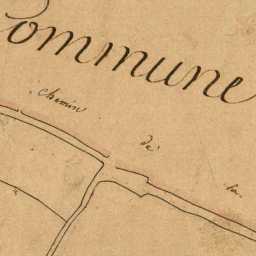 Commune
chemin de la